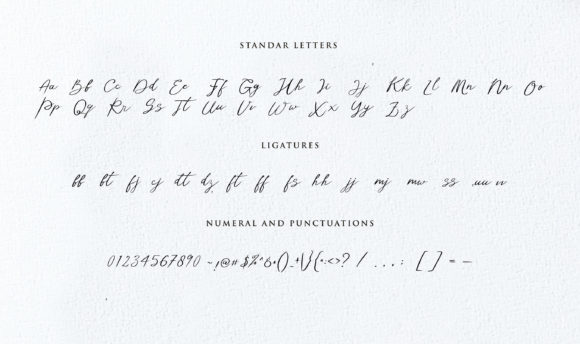 STANDAR LETTERS
Aa Bb Cc Dd Ee Ff Gg Hh Ii Jj Kk Ll Mm Nn Oo
Pp Qq Rr Ss Tt Uu Vv Ww Xx Yy Zz
LIGATURES
bb bt fj cj dt dz ft ff fs hh jj mj mw ss uu vv
NUMERAL AND PUNCTUATIONS
01234567890 ~,!@#$%^&*()_+|\}{":<>? / ...; [ ] = –